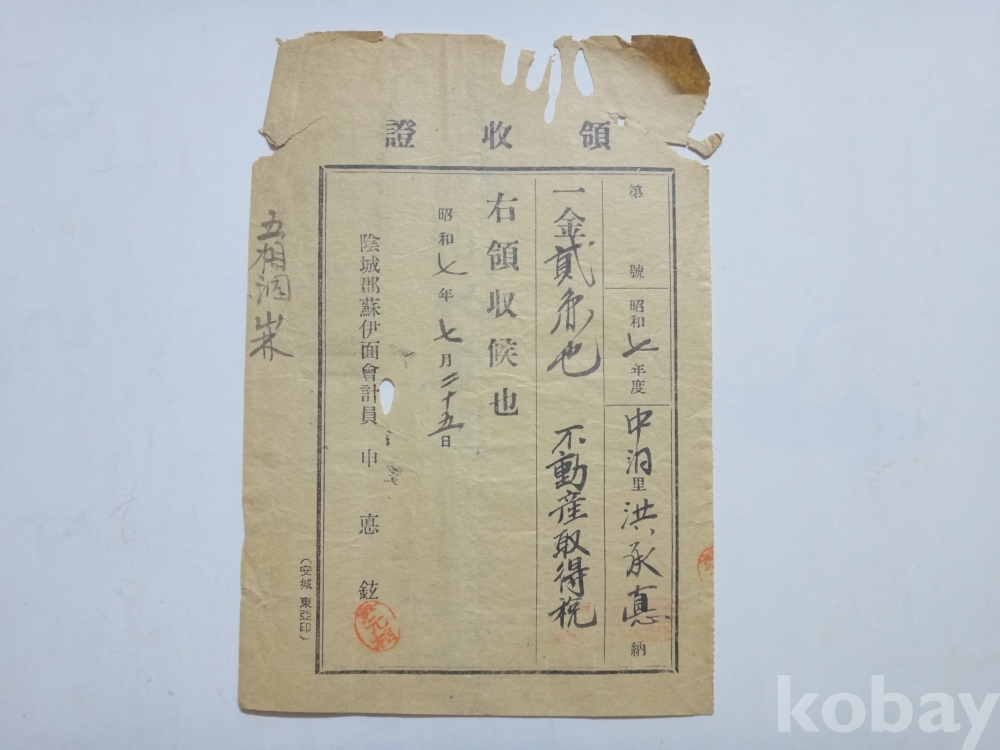 領收證
第 號 昭和七年度 中洞里 洪承悳 納
一金貳 也 不動産取得稅
右領收候也
昭和七年七月二十五日
陰城郡蘇伊面會計員 申悳鉉
(安城 東亞印)
五相洞
kobay